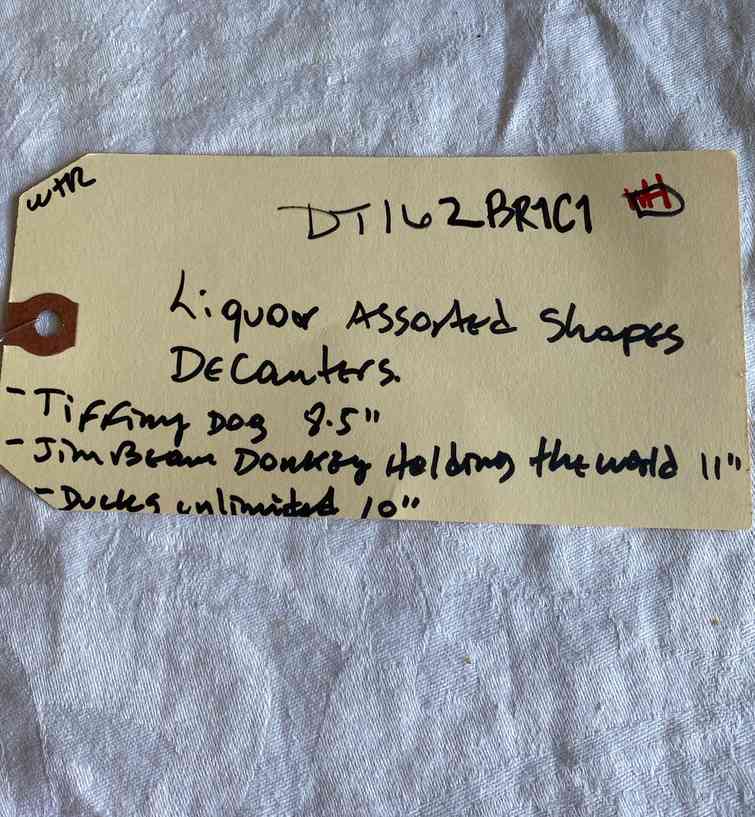 WTR
DT162BR1C1
Liquor Assorted Shapes
Decanters.
- Tiffiny Dog 8.5"
- Jim Beam Donkey Holding the world 11"
- Ducks unlimited 10"